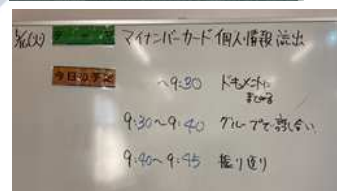 テーマ マイナンバーカード 個人情報 流出
今日の予定
~9:30 ドキュメントに
まとめる
9:30~9:40 グループで話し合い
9:40~9:45 振り返り